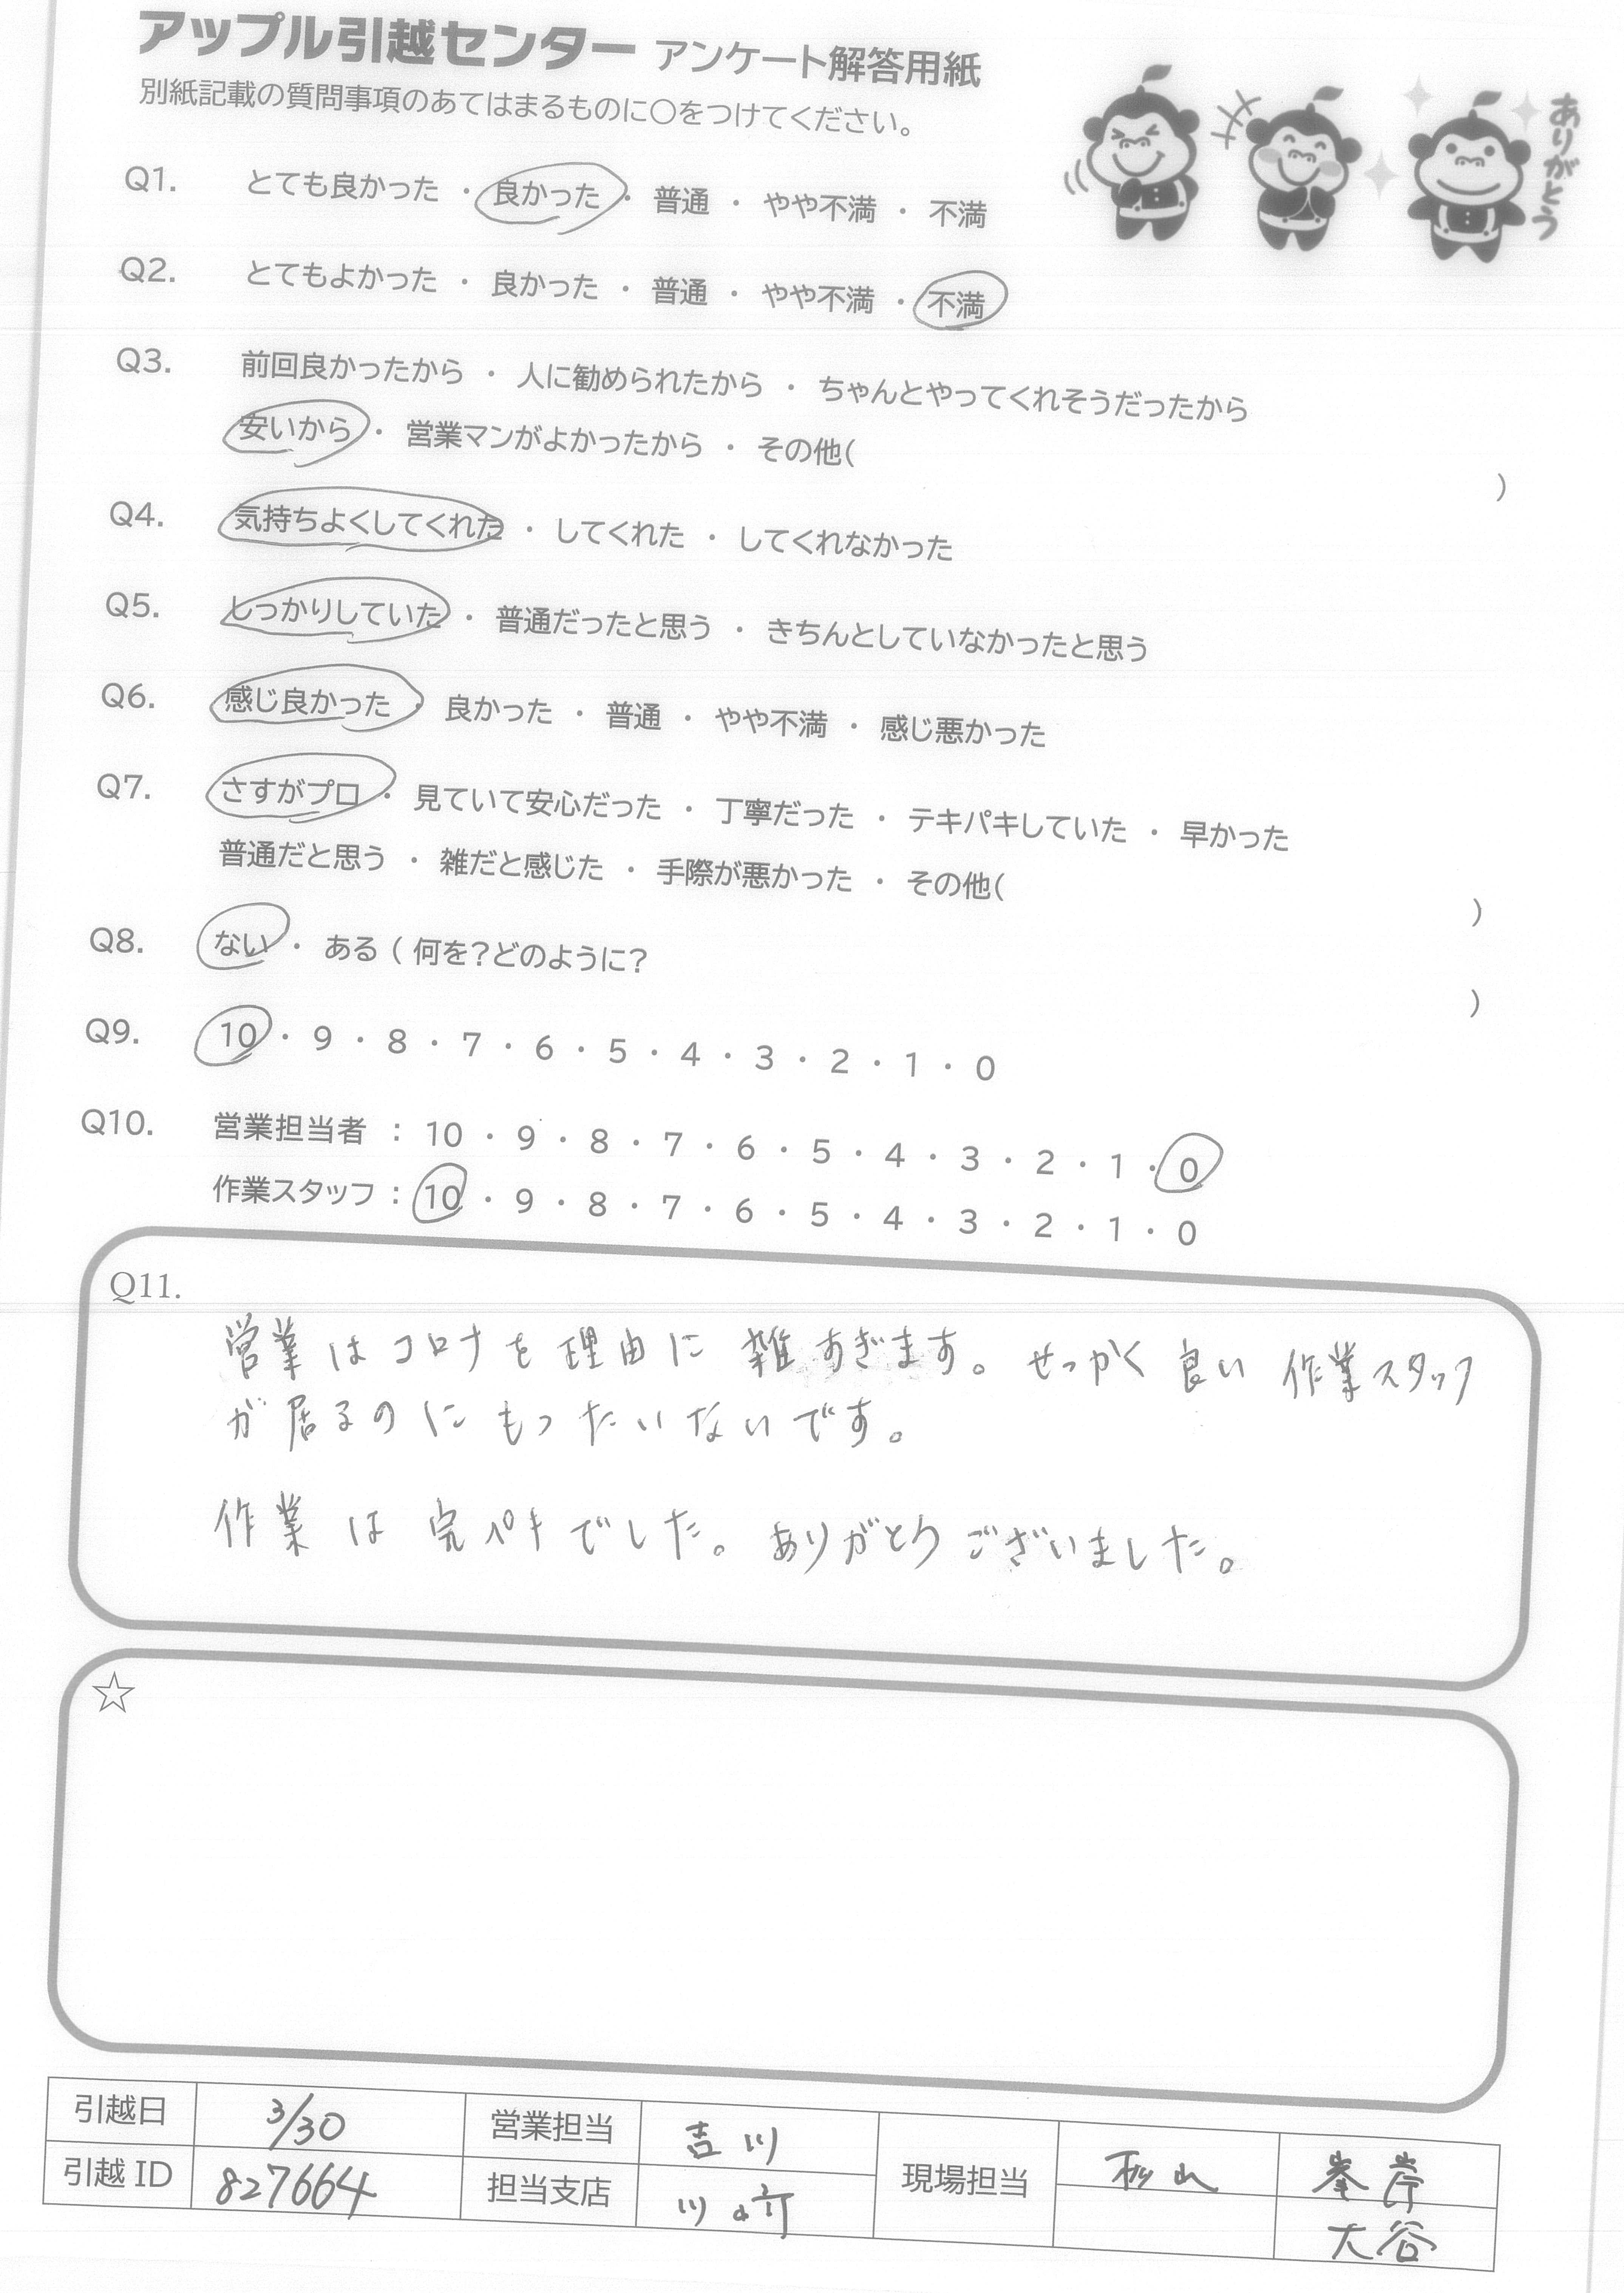 アップル引越センター アンケート解答用紙
別紙記載の質問事項のあてはまるものに〇をつけてください。
ありがとう
Q1. とても良かった ・ 良かった ・ 普通 ・ やや不満 ・ 不満
Q2. とてもよかった ・ 良かった ・ 普通 ・ やや不満 ・ 不満
Q3. 前回良かったから ・ 人に勧められたから ・ ちゃんとやってくれそうだったから
安いから ・ 営業マンがよかったから ・ その他( )
Q4. 気持ちよくしてくれた ・ してくれた ・ してくれなかった
Q5. しっかりしていた ・ 普通だったと思う ・ きちんとしていなかったと思う
Q6. 感じ良かった ・ 良かった ・ 普通 ・ やや不満 ・ 感じ悪かった
Q7. さすがプロ ・ 見ていて安心だった ・ 丁寧だった ・ テキパキしていた ・ 早かった
普通だと思う ・ 雑だと感じた ・ 手際が悪かった ・ その他( )
Q8. ない ・ ある ( 何を?どのように? )
Q9. 10 ・ 9 ・ 8 ・ 7 ・ 6 ・ 5 ・ 4 ・ 3 ・ 2 ・ 1 ・ 0
Q10. 営業担当者 : 10 ・ 9 ・ 8 ・ 7 ・ 6 ・ 5 ・ 4 ・ 3 ・ 2 ・ 1 ・ 0
作業スタッフ : 10 ・ 9 ・ 8 ・ 7 ・ 6 ・ 5 ・ 4 ・ 3 ・ 2 ・ 1 ・ 0
Q11.
営業はコロナを理由に雑すぎます。せっかく良い作業スタッフ
が居るのにもったいないです。
作業は完ペキでした。ありがとうございました。
☆
引越日 3/30 営業担当 吉川 現場担当 峯岸
引越 ID 827664 担当支店 川崎 大谷